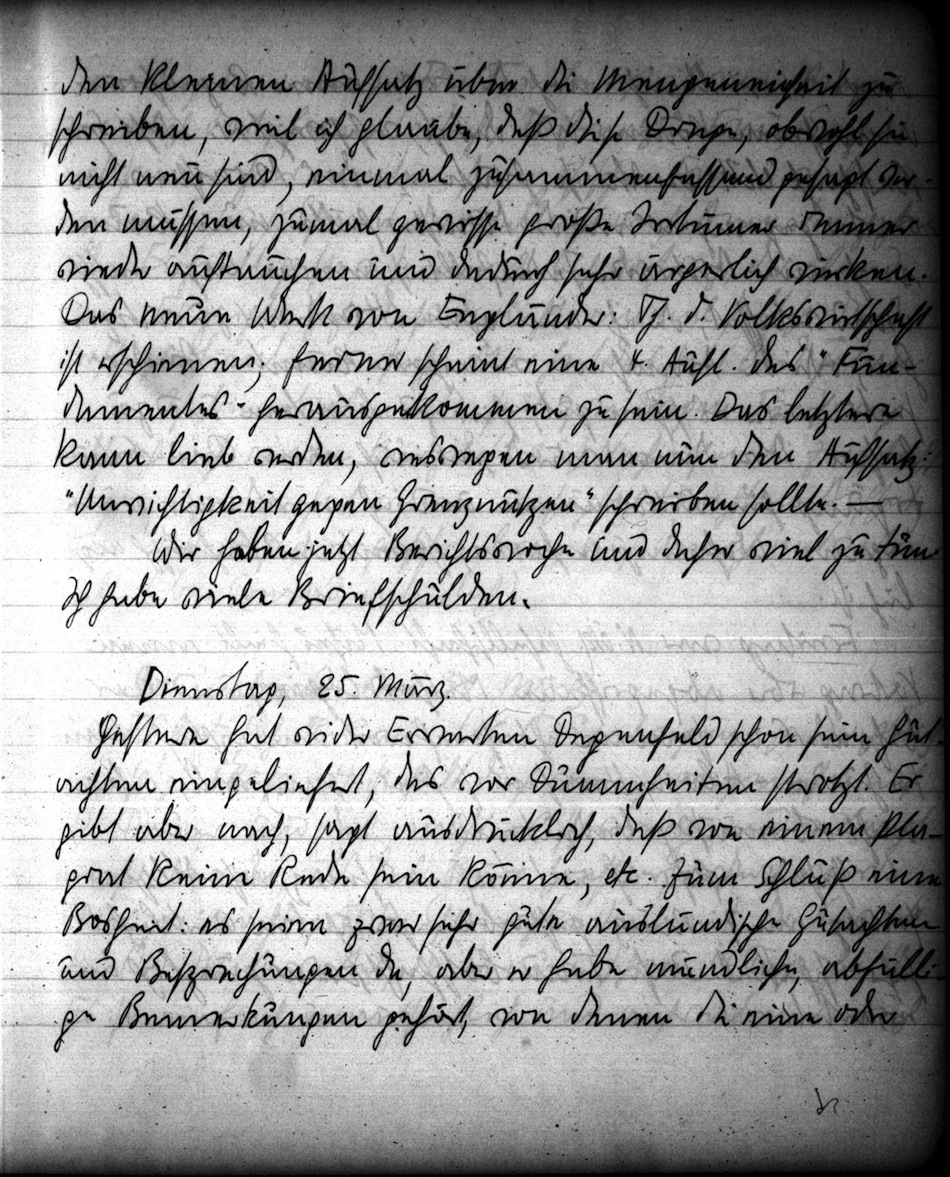 den kleinen Aufsatz über die Mengeneinheit zu
schreiben, weil ich glaube, daß diese Dinge, obwohl sie
nicht neu sind, einmal zusammenfassend gesagt wer-
den müssen, zumal gewisse große Irrtümer immer
wieder auftauchen und dadurch sehr ärgerlich wirken.
Das neue Werk von Engländer: Th. d. Volkswirtschaft
ist erschienen; ferner scheint eine 4. Aufl. des "Fun-
damentes" herausgekommen zu sein. Das letztere
kann lieb werden, weswegen man nun den Aufsatz:
"Unrichtigkeit gegen Grenznutzen" schreiben sollte. —
Wir haben jetzt Berichtswoche und daher viel zu tun
Ich habe viele Briefschulden.
Dienstag, 25. März.
Gestern hat wider Erwarten Degenfeld schon sein Gut-
achten eingeliefert, das vor Dummheiten strotzt. Er
gibt aber nach, sagt ausdrücklich, daß von einem Pla-
giat keine Rede sein könne, etc. Zum Schluß eine
Bosheit: es seien zwar sehr gute ausländische Gutachten
und Besprechungen da, aber er habe mündliche, abfälli-
ge Bemerkungen gehört, von denen die eine oder